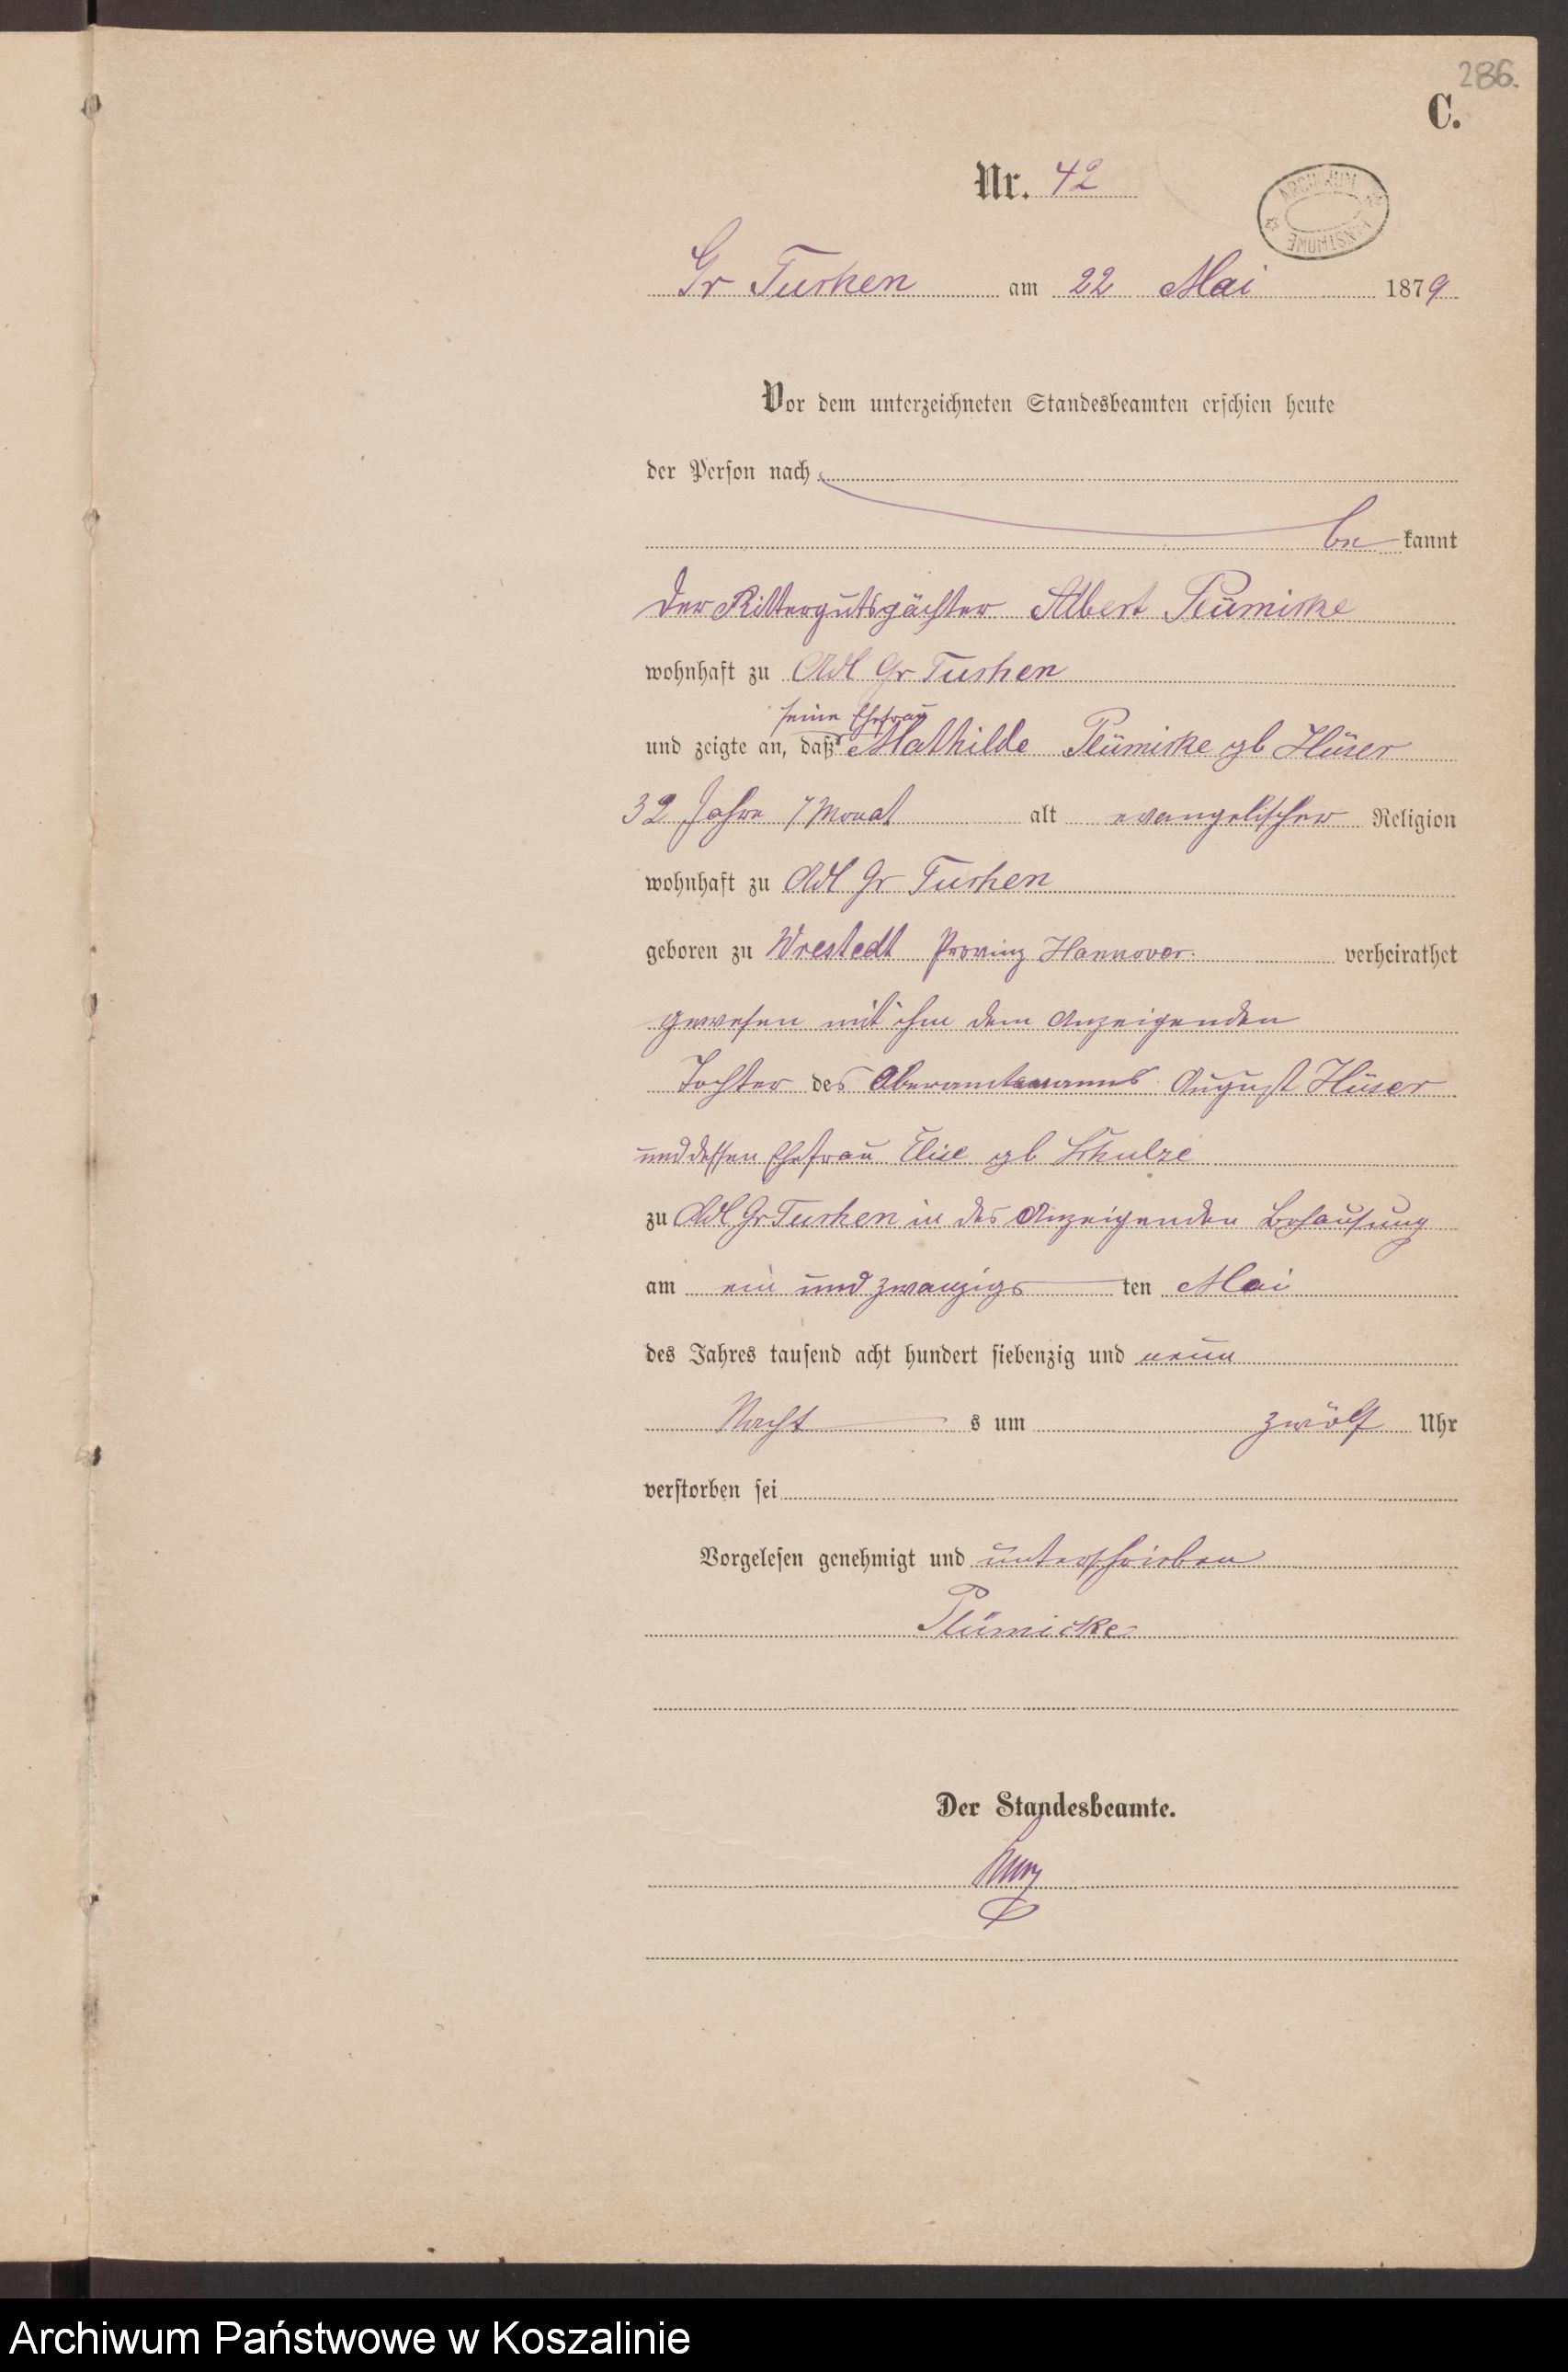 286.
C.
Nr. 42
ARCHIWUM
PAŃSTWOWE
Gr Tuchen am 22 Mai 1879
Vor dem unterzeichneten Standesbeamten erschien heute
der Person nach
be kannt
der Rittergutspächter Albert Plümicke
wohnhaft zu Adl Gr Tuchen
seine Ehefrau
und zeigte an, daß Mathilde Plümicke gb Hüser
32 Jahre 7 Monat alt evangelischer Religion
wohnhaft zu Adl Gr Tuchen
geboren zu Wrestedt Provinz Hannover. verheirathet
gewesen mit ihm dem Anzeigenden
Tochter des Oberamtmanns August Hüser
und dessen Ehefrau Elise gb Schulze
zu Adl Gr Tuchen in des Anzeigenden Behausung
am ein und zwanzigs ten Mai
des Jahres tausend acht hundert siebenzig und neun
Nacht s um zwölf Uhr
verstorben sei
Vorgelesen genehmigt und unterschrieben
Plümicke
Der Standesbeamte.
Archiwum Państwowe w Koszalinie